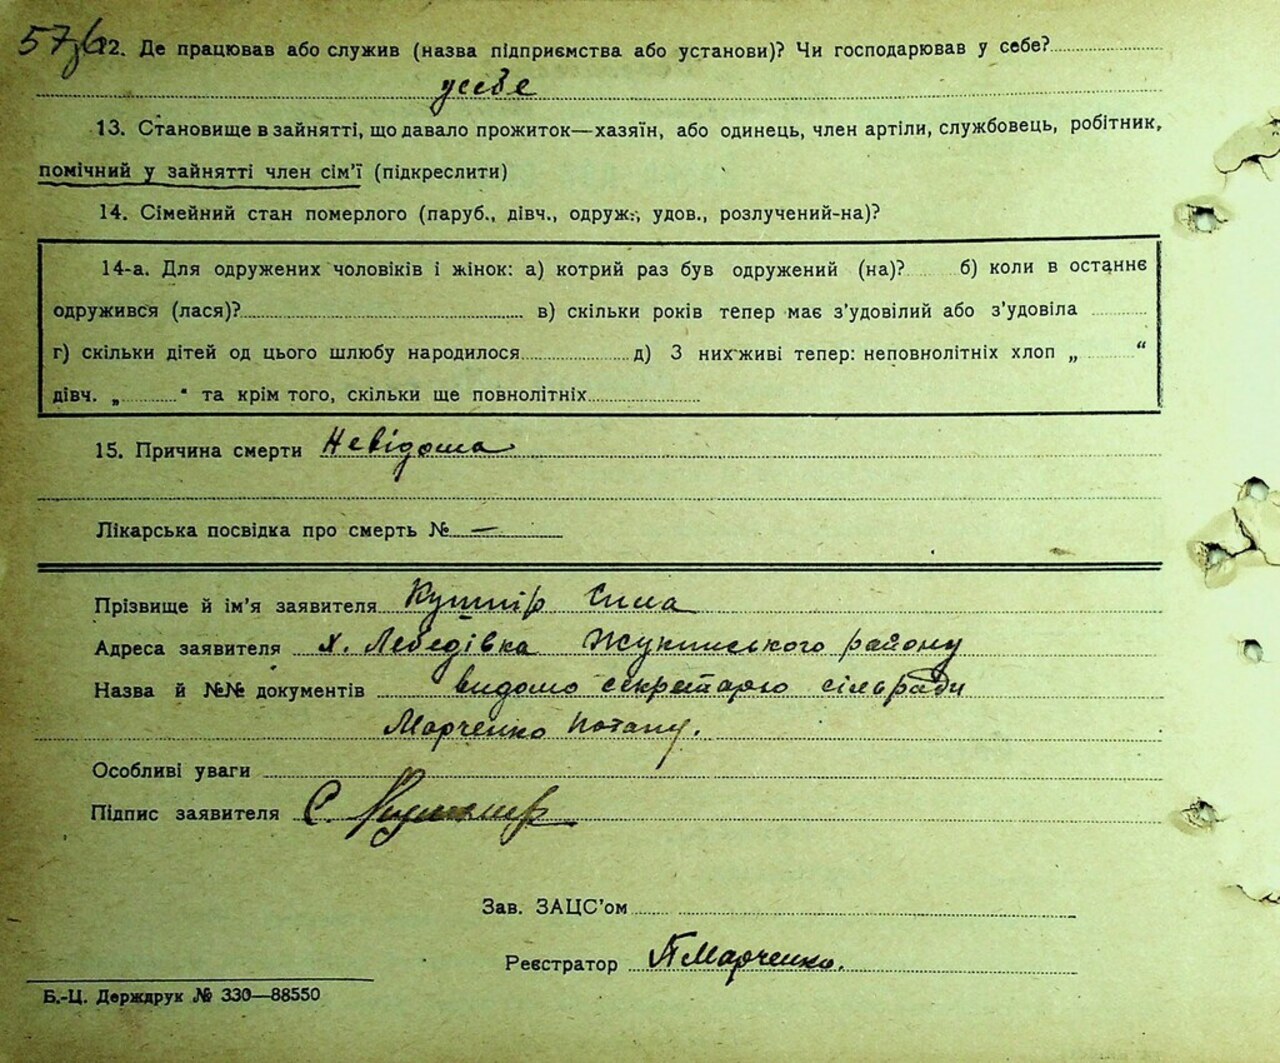 57зв
12. Де працював або служив (назва підприємства або установи)? Чи господарював у себе?
у себе
13. Становище в зайнятті, що давало прожиток—хазяїн, або одинець, член артіли, службовець, робітник,
помічний у зайнятті член сім'ї (підкреслити)
14. Сімейний стан померлого (паруб., дівч., одруж., удов., розлучений-на)?
14-а. Для одружених чоловіків і жінок: а) котрий раз був одружений (на)? б) коли в останнє
одружився (лася)? в) скільки років тепер має з'удовілий або з'удовіла
г) скільки дітей од цього шлюбу народилося д) З них живі тепер: неповнолітніх хлоп „ “
дівч. „ “ та крім того, скільки ще повнолітніх
15. Причина смерти Невідома
Лікарська посвідка про смерть № —
Прізвище й ім'я заявителя Кушнір Сила
Адреса заявителя х. Лебедівка Жукинського району
Назва й №№ документів видомо секретарю сільради
Марченко Потапу.
Особливі уваги
Підпис заявителя С. Кушнир
Зав. ЗАЦС'ом
Реєстратор П Марченко.
Б.-Ц. Держдрук № 330—88550